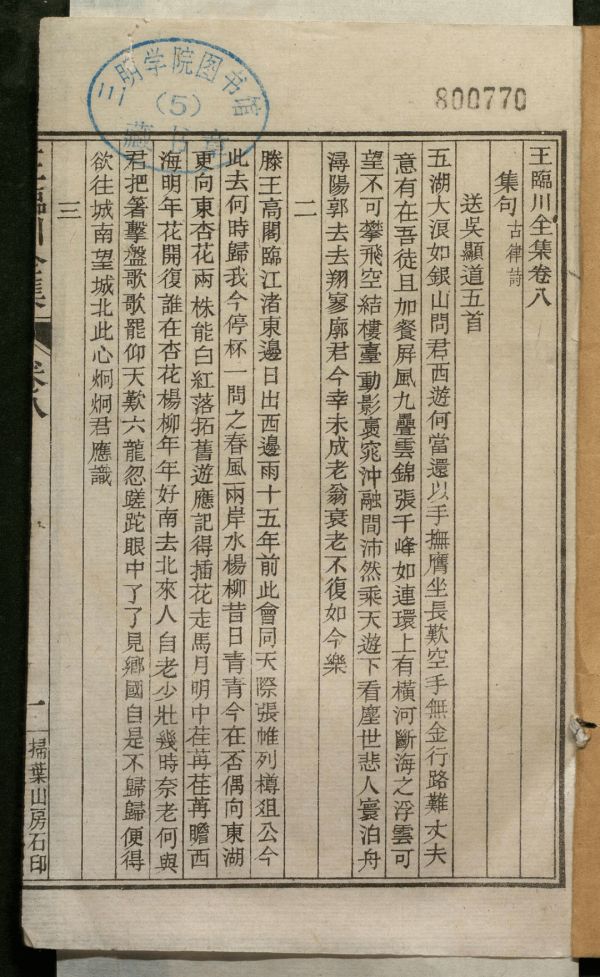 三明学院图书馆
(5)
藏书章
800770
王臨川全集卷八
集句古律詩
送吳顯道五首
五湖大浪如銀山問君西遊何當還以手撫膺坐長歎空手無金行路難丈夫
意有在吾徒且加餐屏風九疊雲錦張千峰如連環上有橫河斷海之浮雲可
望不可攀飛空結樓臺動影裛窕沖融間沛然乘天遊下看塵世悲人寰泊舟
潯陽郭去去翔寥廓君今幸未成老翁衰老不復如今樂
二
滕王高閣臨江渚東邊日出西邊雨十五年前此會同天際張帷列樽俎公今
此去何時歸我今停杯一問之春風兩岸水楊柳昔日青青今在否偶向東湖
更向東杏花兩株能白紅落拓舊遊應記得插花走馬月明中荏苒荏苒瞻西
海明年花開復誰在杏花楊柳年年好南去北來人自老少壯幾時奈老何與
君把箸擊盤歌歌罷仰天歎六龍忽蹉跎眼中了了見鄉國自是不歸歸便得
欲往城南望城北此心炯炯君應識
三
王臨川全集
卷八
一
掃葉山房石印